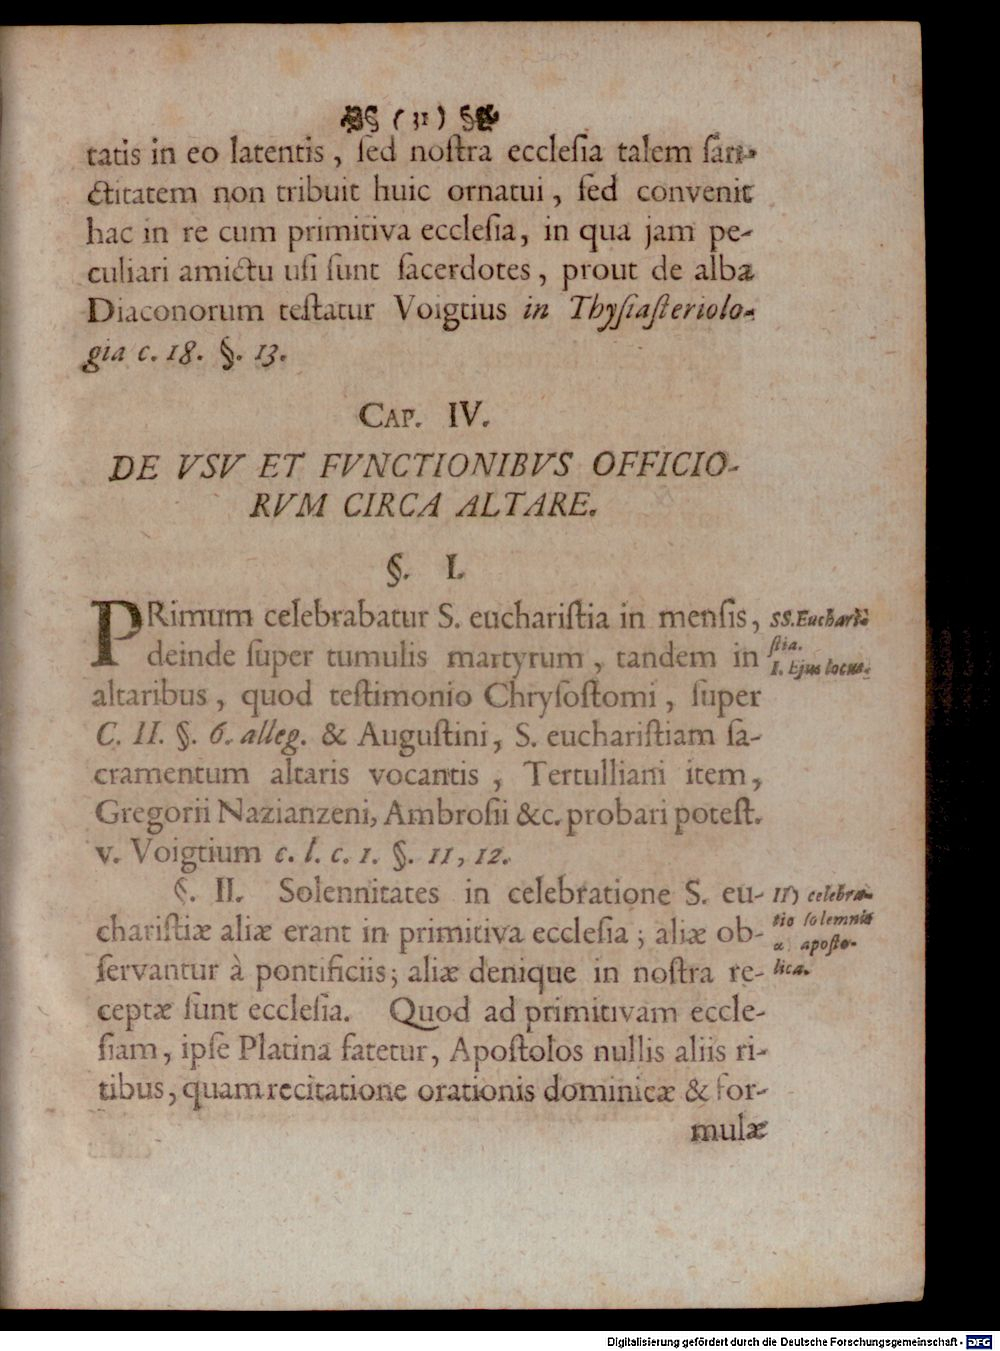 ( 31 )
tatis in eo latentis, ſed noſtra ecclesia talem ſan-
ctitatem non tribuit huic ornatui, ſed convenit
hac in re cum primitiva eccleſia, in qua jam pe-
culiari amictu uſi ſunt ſacerdotes, prout de alba
Diaconorum teſtatur Voigtius in Thyſiaſteriolo-
gia c. 18. §. 13.
CAP. IV.
DE VSV ET FVNCTIONIBVS OFFICIO-
RVM CIRCA ALTARE.
§. I.
PRimum celebrabatur S. euchariſtia in menſis,
deinde ſuper tumulis martyrum, tandem in
altaribus, quod teſtimonio Chryſoſtomi, ſuper
C. II. §. 6. alleg. & Auguſtini, S. euchariſtiam ſa-
cramentum altaris vocantis, Tertulliani item,
Gregorii Nazianzeni, Ambroſii &c. probari poteſt.
v. Voigtium c. l. c. 1. §. 11, 12.
SS. Euchari-
ſtia.
I. Ejus locus.
§. II. Solennitates in celebratione S. eu-
chariſtiæ aliæ erant in primitiva eccleſia; aliæ ob-
ſervantur à pontificiis; aliæ denique in noſtra re-
ceptæ ſunt eccleſia. Quod ad primitivam eccle-
ſiam, ipſe Platina fatetur, Apoſtolos nullis aliis ri-
tibus, quam recitatione orationis dominicæ & for-
mulæ
II) celebra-
tio ſolemnis
α apoſto-
lica.
Digitalisierung gefördert durch die Deutsche Forschungsgemeinschaft - DFG